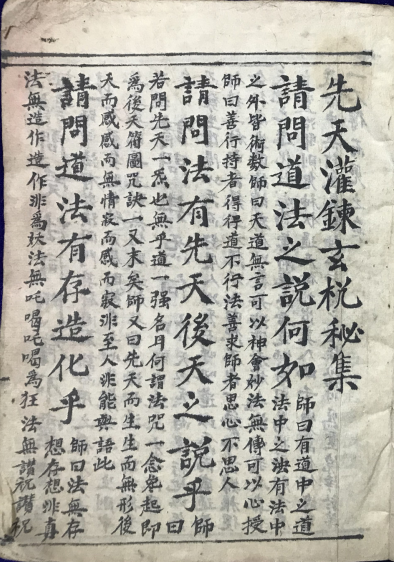 先天灌鍊玄秘集
請問道法之說何如
師曰有道中之道
法中之法有法中
之外皆術数師曰天道無言可以神會妙法無傳可以心授
師曰善行持者得得道不行法善求師者思心不思人
請問法有先天後天之說乎
師
曰
若問先天一炁也無乎道一强名耳何謂法咒一念起即
為後天符圖咒訣一又末矣師又曰先天而生生而無形後
天而感感而無情寂而感而寂非至人非能與語此
請問道法有存造化乎
師曰法無存
想存想非真
法無造作造作非為妖法無吒喝吒喝為狂法無讃祝讃祝